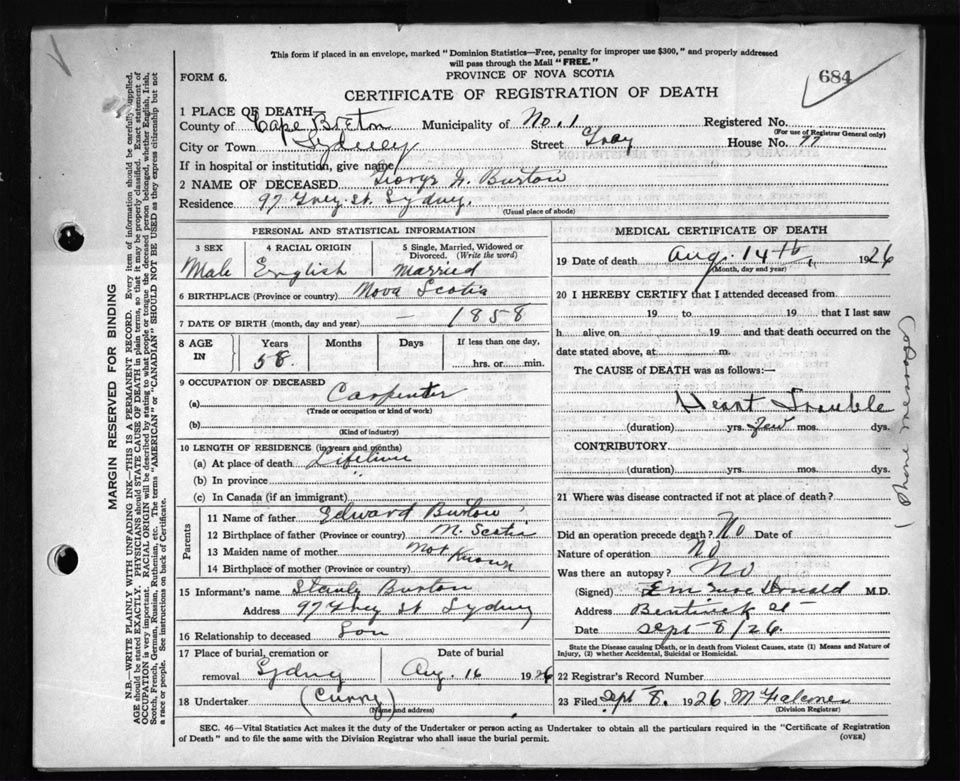 This form if placed in an envelope, marked "Dominion Statistics—Free, penalty for improper use $300," and properly addressed
will pass through the Mail "FREE."
FORM 6.
PROVINCE OF NOVA SCOTIA
684
CERTIFICATE OF REGISTRATION OF DEATH
1 PLACE OF DEATH—
County of Cape Breton Municipality of No. 1 Registered No.
(For use of Registrar General only)
City or Town Sydney Street House No.
If in hospital or institution, give name
2 NAME OF DECEASED George Burton
Residence 97 St. Sydney.
(Usual place of abode)
PERSONAL AND STATISTICAL INFORMATION
3 SEX 4 RACIAL ORIGIN 5 Single, Married, Widowed or Divorced. (Write the word)
Male English Married
6 BIRTHPLACE (Province or country) Nova Scotia
7 DATE OF BIRTH (month, day and year) — 1858
8 AGE IN Years Months Days If less than one day,
58. hrs. or min.
9 OCCUPATION OF DECEASED
(a) Carpenter
(Trade or occupation or kind of work)
(b)
(Kind of industry)
10 LENGTH OF RESIDENCE (in years and months)
(a) At place of death Lifetime
(b) In province "
(c) In Canada (if an immigrant)
Parents
11 Name of father Edward Burton
12 Birthplace of father (Province or country) N. Scotia
13 Maiden name of mother Not Known
14 Birthplace of mother (Province or country)
15 Informant's name Stanly Burton
Address 97 St Sydney
16 Relationship to deceased Son
17 Place of burial, cremation or Date of burial
removal Sydney Aug. 16 1926
18 Undertaker (Curry)
(Name and address)
MEDICAL CERTIFICATE OF DEATH
19 Date of death Aug. 14th 1926
(Month, day and year)
20 I HEREBY CERTIFY that I attended deceased from
19 to 19 that I last saw
h alive on 19 and that death occurred on
date stated above, at m.
The CAUSE of DEATH was as follows:—
Heart Trouble
(duration) yrs. Few mos. dys.
CONTRIBUTORY
(duration) yrs. mos. dys.
21 Where was disease contracted if not at place of death?
Did an operation precede death? No Date of
Nature of operation No
Was there an autopsy? No
(Signed) M.D.
Address Bentinck St
Date Sept 8/26.
State the Disease causing Death, or in death from Violent Causes, state (1) Means and Nature of
Injury, (2) whether Accidental, Suicidal or Homicidal.
22 Registrar's Record Number
23 Filed Sept 8. 1926.
(Division Registrar)
SEC. 46—Vital Statistics Act makes it the duty of the Undertaker or person acting as Undertaker to obtain all the particulars required in the "Certificate of Registration
of Death" and to file the same with the Division Registrar who shall issue the burial permit.
(OVER)
MARGIN RESERVED FOR BINDING
N.B.—WRITE PLAINLY WITH UNFADING INK—THIS IS A PERMANENT RECORD. Every item of information should be carefully supplied.
AGE should be stated EXACTLY. PHYSICIANS should STATE CAUSE OF DEATH in plain terms, so that it may be properly classified. Exact statement of
OCCUPATION is very important. RACIAL ORIGIN will be described by stating to what people or tongue the deceased person belonged, whether English, Irish,
Scotch, French, German, Russian, Ruthenian, etc. The terms "AMERICAN" or "CANADIAN" SHOULD NOT BE USED as they express citizenship but not
a race or people. See instructions on back of Certificate.